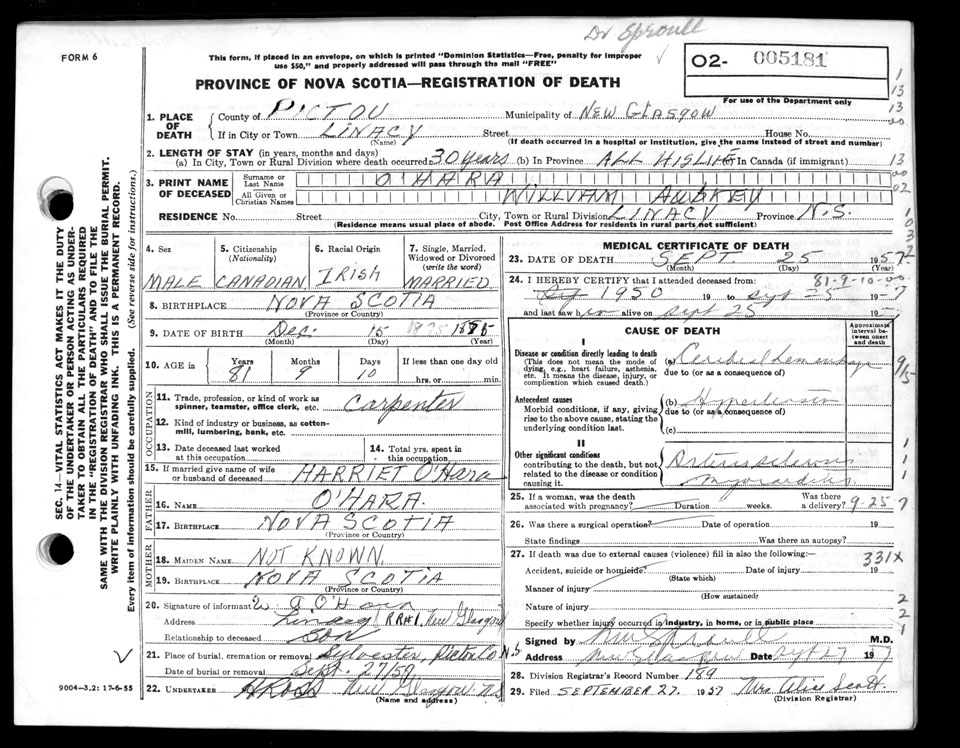 Dr Sproull
FORM 6
This form, if placed in an envelope, on which is printed "Dominion Statistics—Free, penalty for improper
use $50," and properly addressed will pass through the mail "FREE"
02- 005181
For use of the Department only
PROVINCE OF NOVA SCOTIA—REGISTRATION OF DEATH
1. PLACE OF DEATH
County of PICTOU Municipality of NEW GLASGOW
If in City or Town LINACY Street House No.
(Name) (If death occurred in a hospital or institution, give the name instead of street and number)
2. LENGTH OF STAY (in years, months and days)
(a) In City, Town or Rural Division where death occurred 30 years (b) In Province ALL HIS LIFE In Canada (if immigrant)
3. PRINT NAME OF DECEASED
Surname or Last Name O'HARA
All Given or Christian Names WILLIAM AUBREY
RESIDENCE No. Street City, Town or Rural Division LINACY Province N.S.
(Residence means usual place of abode. Post Office Address for residents in rural parts not sufficient)
4. Sex
MALE
5. Citizenship
(Nationality)
CANADIAN
6. Racial Origin
IRISH
7. Single, Married, Widowed or Divorced
(write the word)
MARRIED
8. BIRTHPLACE NOVA SCOTIA
(Province or Country)
9. DATE OF BIRTH Dec. 15 1875
(Month) (Day) (Year)
10. AGE in Years Months Days If less than one day old
81 9 10 hrs. or min.
OCCUPATION
11. Trade, profession, or kind of work as
spinner, teamster, office clerk, etc. Carpenter
12. Kind of industry or business, as cotton-
mill, lumbering, bank, etc.
13. Date deceased last worked
at this occupation
14. Total yrs. spent in
this occupation
15. If married give name of wife
or husband of deceased HARRIET O'Hara
FATHER
16. NAME O'HARA.
17. BIRTHPLACE NOVA SCOTIA
(Province or Country)
MOTHER
18. MAIDEN NAME NOT KNOWN
19. BIRTHPLACE NOVA SCOTIA
(Province or Country)
20. Signature of informant W. A. O'Hara
Address Linacy RR#1, New Glasgow
Relationship to deceased SON
21. Place of burial, cremation or removal Sylvester, Pictou Co N.S.
Date of burial or removal Sept. 27/57
22. UNDERTAKER H Ross New Glasgow N.S.
(Name and address)
MEDICAL CERTIFICATE OF DEATH
23. DATE OF DEATH SEPT. 25 1957
(Month) (Day) (Year)
24. I HEREBY CERTIFY that I attended deceased from: 81-9-10-00
1950 19 to Sept 25 1957
and last saw him alive on Sept 25 195
CAUSE OF DEATH
Approximate interval between onset and death
I
Disease or condition directly leading to death
(This does not mean the mode of
dying, e.g., heart failure, asthenia,
etc. It means the disease, injury, or
complication which caused death.)
(a) Cerebral hemorrhage
due to (or as a consequence of)
Antecedent causes
Morbid conditions, if any, giving
rise to the above cause, stating the
underlying condition last.
(b) Hypertension
due to (or as a consequence of)
(c)
II
Other significant conditions
contributing to the death, but not
related to the disease or condition
causing it.
Arteriosclerosis
Myocarditis
25. If a woman, was the death
associated with pregnancy? Duration weeks. Was there a delivery? 9-25 7
26. Was there a surgical operation? Date of operation 19
State findings Was there an autopsy?
27. If death was due to external causes (violence) fill in also the following: 331X
Accident, suicide or homicide? Date of injury 19
(State which)
Manner of injury
(How sustained)
Nature of injury
Specify whether injury occurred in industry, in home, or in public place
Signed by Sproull M.D.
Address New Glasgow Date Sept 27 1957
28. Division Registrar's Record Number 189
29. Filed SEPTEMBER 27. 1957 Mrs. Alice Scott.
(Division Registrar)
SEC. 14—VITAL STATISTICS ACT MAKES IT THE DUTY
OF THE UNDERTAKER OR PERSON ACTING AS UNDER-
TAKER TO OBTAIN ALL THE PARTICULARS REQUIRED
IN THE "REGISTRATION OF DEATH" AND TO FILE THE
SAME WITH THE DIVISION REGISTRAR WHO SHALL ISSUE THE BURIAL PERMIT.
WRITE PLAINLY WITH UNFADING INK. THIS IS A PERMANENT RECORD.
Every item of information should be carefully supplied. (See reverse side for instructions.)
9004—3.2: 17-6-55
1
13
13
00
13
00
02
10
3
3
2
9/15
1
1
1
2
2
1